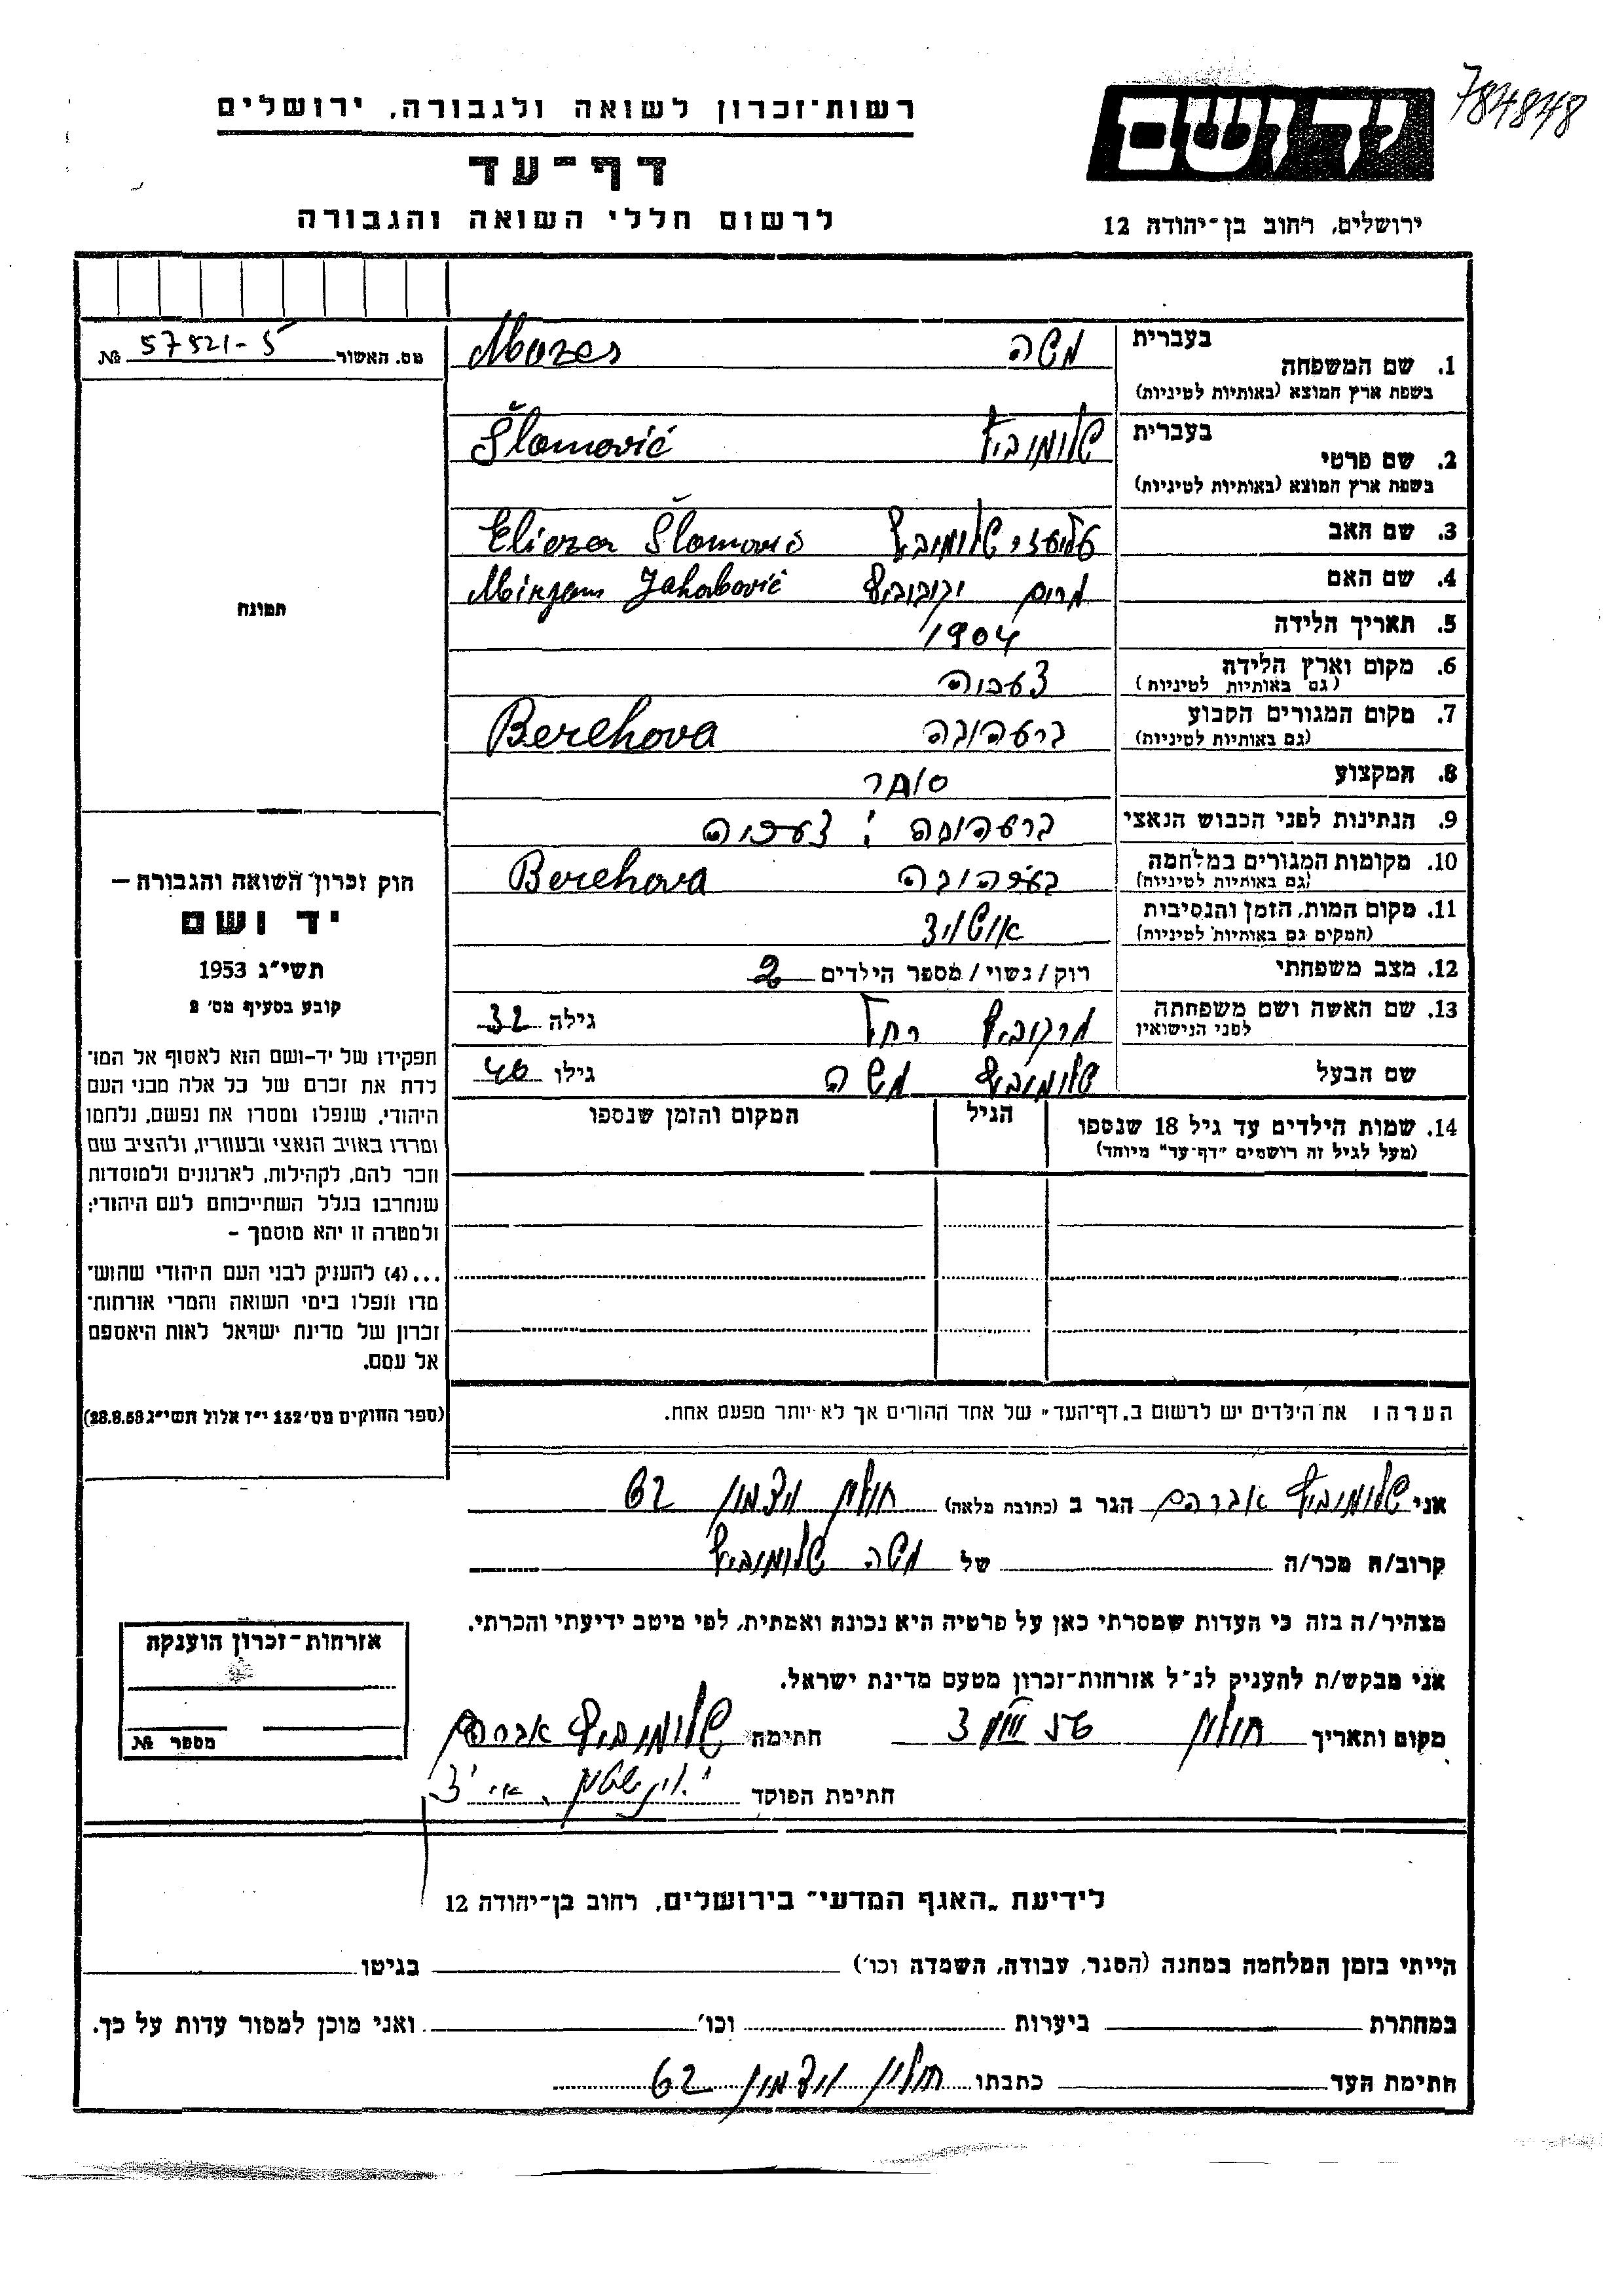 784848
יד ושם
ירושלים, רחוב בן־יהודה 12
רשות־זכרון לשואה ולגבורה, ירושלים
דף־עד
לרשום חללי השואה והגבורה
מס. האשור 57521-5 №
תמונה
חוק זכרון השואה והגבורה –
יד ושם
תשי״ג 1953
קובע בסעיף מס׳ 2
תפקידו של יד–ושם הוא לאסוף אל המו־
לדת את זכרם של כל אלה מבני העם
היהודי, שנפלו ומסרו את נפשם, נלחמו
ומרדו באויב הנאצי ובעוזריו, ולהציב שם
וזכר להם, לקהילות, לארגונים ולמוסדות
שנחרבו בגלל השתייכותם לעם היהודי;
ולמטרה זו יהא מוסמך –
...(4) להעניק לבני העם היהודי שהוש־
מדו ונפלו בימי השואה והמרי אזרחות־
זכרון של מדינת ישראל לאות היאספם
אל עמם.
(ספר החוקים מס׳ 132 י״ז אלול תשי״ג 28.8.53)
בעברית
1. שם המשפחה משה Mozes
בשפת ארץ המוצא (באותיות לטיניות)
בעברית
2. שם פרטי שלומוביץ Šlomović
בשפת ארץ המוצא (באותיות לטיניות)
3. שם האב שלומוביץ Eliezer Šlomović
4. שם האם מרים יקובוביץ Mirjam Jakobović
5. תאריך הלידה 1904
6. מקום וארץ הלידה צעכיה
(גם באותיות לטיניות)
7. מקום המגורים הקבוע ברעהובה Berehova
(גם באותיות לטיניות)
8. המקצוע סוחר
9. הנתינות לפני הכבוש הנאצי צעכיה
10. מקומות המגורים במלחמה ברעהובה Berehova
(גם באותיות לטיניות)
11. מקום המות, הזמן והנסיבות אושויץ
(המקום גם באותיות לטיניות)
12. מצב משפחתי רוק/נשוי/מספר הילדים 2
13. שם האשה ושם משפחתה מרקוביץ רחל גילה 32
לפני הנישואין
שם הבעל שלומוביץ משה גילו 40
14. שמות הילדים עד גיל 18 שנספו הגיל המקום והזמן שנספו
(מעל לגיל זה רושמים ״דף־עד״ מיוחד)
הערה: את הילדים יש לרשום ב„דף־העד״ של אחד ההורים אך לא יותר מפעם אחת.
אני שלומוביץ אברהם הגר ב (כתובת מלאה) חולון ויצמן 62
קרוב/ה מכר/ה של משה שלומוביץ
מצהיר/ה בזה כי העדות שמסרתי כאן על פרטיה היא נכונה ואמתית, לפי מיטב ידיעתי והכרתי.
אני מבקש/ת להעניק לנ״ל אזרחות־זכרון מטעם מדינת ישראל.
מקום ותאריך חולון 3 חתימה שלומוביץ אברהם
חתימת הפוקד
אזרחות־זכרון הוענקה
מספר №
לידיעת „האגף המדעי״ בירושלים, רחוב בן־יהודה 12
הייתי בזמן המלחמה במחנה (הסגר, עבודה, השמדה וכו׳) בגיטו
במחתרת ביערות וכו׳ ואני מוכן למסור עדות על כך.
חתימת העד כתבתו חולון ויצמן 62